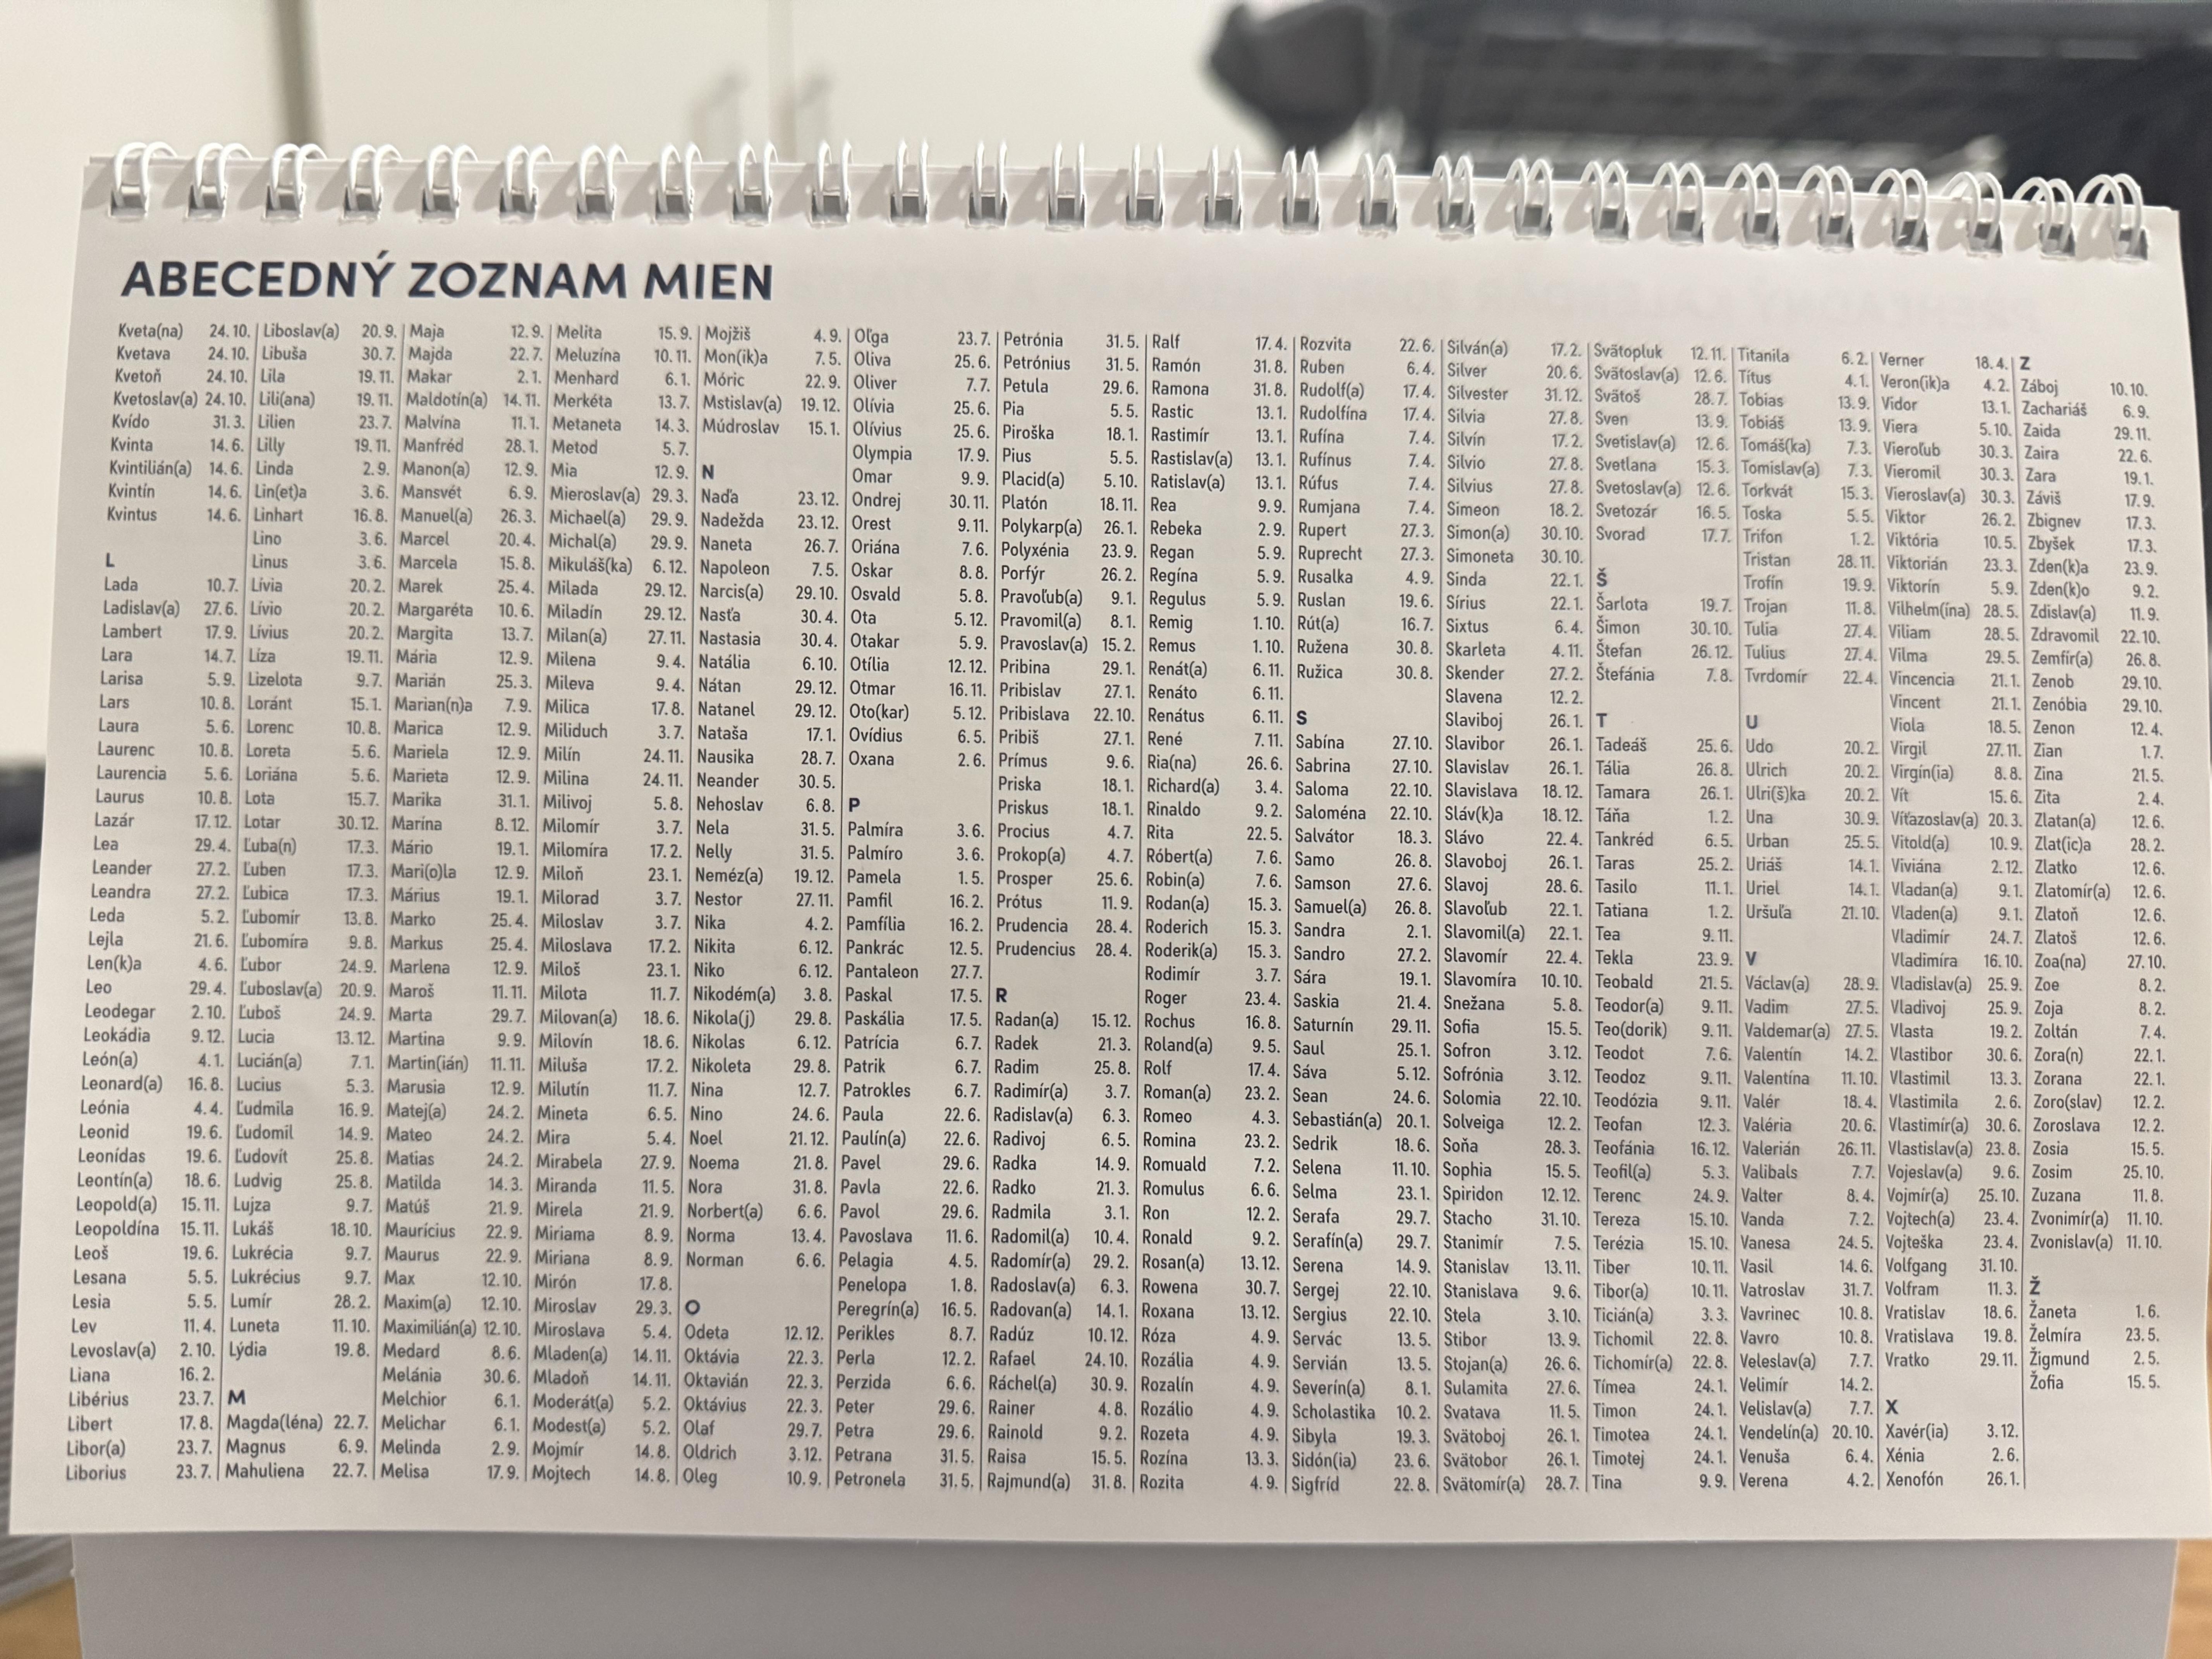 ABECEDNÝ ZOZNAM MIEN
Kveta(na) 24.10.
Kvetava 24.10.
Kvetoň 24.10.
Kvetoslav(a) 24.10.
Kvído 31.3.
Kvinta 14.6.
Kvintilián(a) 14.6.
Kvintín 14.6.
Kvintus 14.6.
L
Lada 10.7.
Ladislav(a) 27.6.
Lambert 17.9.
Lara 14.7.
Larisa 5.9.
Lars 10.8.
Laura 5.6.
Laurenc 10.8.
Laurencia 5.6.
Laurus 10.8.
Lazár 17.12.
Lea 29.4.
Leander 27.2.
Leandra 27.2.
Leda 5.2.
Lejla 21.6.
Len(k)a 4.6.
Leo 29.4.
Leodegar 2.10.
Leokádia 9.12.
León(a) 4.1.
Leonard(a) 16.8.
Leónia 4.4.
Leonid 19.6.
Leonídas 19.6.
Leontín(a) 18.6.
Leopold(a) 15.11.
Leopoldína 15.11.
Leoš 19.6.
Lesana 5.5.
Lesia 5.5.
Lev 11.4.
Levoslav(a) 2.10.
Liana 16.2.
Libérius 23.7.
Libert 17.8.
Libor(a) 23.7.
Liborius 23.7.
Liboslav(a) 20.9.
Libuša 30.7.
Lila 19.11.
Lili(ana) 19.11.
Lilien 23.7.
Lilly 19.11.
Linda 2.9.
Lin(et)a 3.6.
Linhart 16.8.
Lino 3.6.
Linus 3.6.
Lívia 20.2.
Lívio 20.2.
Lívius 20.2.
Líza 19.11.
Lizelota 9.7.
Loránt 15.1.
Lorenc 10.8.
Loreta 5.6.
Loriána 5.6.
Lota 15.7.
Lotar 30.12.
Ľuba(n) 17.3.
Ľuben 17.3.
Ľubica 17.3.
Ľubomír 13.8.
Ľubomíra 9.8.
Ľubor 24.9.
Ľuboslav(a) 20.9.
Ľuboš 24.9.
Lucia 13.12.
Lucián(a) 7.1.
Lucius 5.3.
Ľudmila 16.9.
Ľudomil 14.9.
Ľudovít 25.8.
Ludvig 25.8.
Lujza 9.7.
Lukáš 18.10.
Lukrécia 9.7.
Lukrécius 9.7.
Lumír 28.2.
Luneta 11.10.
Lýdia 19.8.
M
Magda(léna) 22.7.
Magnus 6.9.
Mahuliena 22.7.
Maja 12.9.
Majda 22.7.
Makar 2.1.
Maldotín(a) 14.11.
Malvína 11.1.
Manfréd 28.1.
Manon(a) 12.9.
Mansvét 6.9.
Manuel(a) 26.3.
Marcel 20.4.
Marcela 15.8.
Marek 25.4.
Margaréta 10.6.
Margita 13.7.
Mária 12.9.
Marián 25.3.
Marian(n)a 7.9.
Marica 12.9.
Mariela 12.9.
Marieta 12.9.
Marika 31.1.
Marína 8.12.
Mário 19.1.
Mari(o)la 12.9.
Márius 19.1.
Marko 25.4.
Markus 25.4.
Marlena 12.9.
Maroš 11.11.
Marta 29.7.
Martina 9.9.
Martin(ián) 11.11.
Marusia 12.9.
Matej(a) 24.2.
Mateo 24.2.
Matias 24.2.
Matilda 14.3.
Matúš 21.9.
Maurícius 22.9.
Maurus 22.9.
Max 12.10.
Maxim(a) 12.10.
Maximilián(a) 12.10.
Medard 8.6.
Melánia 30.6.
Melchior 6.1.
Melichar 6.1.
Melinda 2.9.
Melisa 17.9.
Melita 15.9.
Meluzína 10.11.
Menhard 6.1.
Merkéta 13.7.
Metaneta 14.3.
Metod 5.7.
Mia 12.9.
Mieroslav(a) 29.3.
Michael(a) 29.9.
Michal(a) 29.9.
Mikuláš(ka) 6.12.
Milada 29.12.
Miladín 29.12.
Milan(a) 27.11.
Milena 9.4.
Mileva 9.4.
Milica 17.8.
Miliduch 3.7.
Milín 24.11.
Milina 24.11.
Milivoj 5.8.
Milomír 3.7.
Milomíra 17.2.
Miloň 23.1.
Milorad 3.7.
Miloslav 3.7.
Miloslava 17.2.
Miloš 23.1.
Milota 11.7.
Milovan(a) 18.6.
Milovín 18.6.
Miluša 17.2.
Milutín 11.7.
Mineta 6.5.
Mira 5.4.
Mirabela 27.9.
Miranda 11.5.
Mirela 21.9.
Miriama 8.9.
Miriana 8.9.
Mirón 17.8.
Miroslav 29.3.
Miroslava 5.4.
Mladen(a) 14.11.
Mladoň 14.11.
Moderát(a) 5.2.
Modest(a) 5.2.
Mojmír 14.8.
Mojtech 14.8.
Mojžiš 4.9.
Mon(ik)a 7.5.
Móric 22.9.
Mstislav(a) 19.12.
Múdroslav 15.1.
N
Naďa 23.12.
Nadežda 23.12.
Naneta 26.7.
Napoleon 7.5.
Narcis(a) 29.10.
Nasťa 30.4.
Nastasia 30.4.
Natália 6.10.
Nátan 29.12.
Natanel 29.12.
Nataša 17.1.
Nausika 28.7.
Neander 30.5.
Nehoslav 6.8.
Nela 31.5.
Nelly 31.5.
Neméz(a) 19.12.
Nestor 27.11.
Nika 4.2.
Nikita 6.12.
Niko 6.12.
Nikodém(a) 3.8.
Nikola(j) 29.8.
Nikolas 6.12.
Nikoleta 29.8.
Nina 12.7.
Nino 24.6.
Noel 21.12.
Noema 21.8.
Nora 31.8.
Norbert(a) 6.6.
Norma 13.4.
Norman 6.6.
O
Odeta 12.12.
Oktávia 22.3.
Oktavián 22.3.
Oktávius 22.3.
Olaf 29.7.
Oldrich 3.12.
Oleg 10.9.
Oľga 23.7.
Oliva 25.6.
Oliver 7.7.
Olívia 25.6.
Olívius 25.6.
Olympia 17.9.
Omar 9.9.
Ondrej 30.11.
Orest 9.11.
Oriána 7.6.
Oskar 8.8.
Osvald 5.8.
Ota 5.12.
Otakar 5.9.
Otília 12.12.
Otmar 16.11.
Oto(kar) 5.12.
Ovídius 6.5.
Oxana 2.6.
P
Palmíra 3.6.
Palmíro 3.6.
Pamela 1.5.
Pamfil 16.2.
Pamfília 16.2.
Pankrác 12.5.
Pantaleon 27.7.
Paskal 17.5.
Paskália 17.5.
Patrícia 6.7.
Patrik 6.7.
Patrokles 6.7.
Paula 22.6.
Paulín(a) 22.6.
Pavel 29.6.
Pavla 22.6.
Pavol 29.6.
Pavoslava 11.6.
Pelagia 4.5.
Penelopa 1.8.
Peregrín(a) 16.5.
Perikles 8.7.
Perla 12.2.
Perzida 6.6.
Peter 29.6.
Petra 29.6.
Petrana 31.5.
Petronela 31.5.
Petrónia 31.5.
Petrónius 31.5.
Petula 29.6.
Pia 5.5.
Piroška 18.1.
Pius 5.5.
Placid(a) 5.10.
Platón 18.11.
Polykarp(a) 26.1.
Polyxénia 23.9.
Porfýr 26.2.
Pravoľub(a) 9.1.
Pravomil(a) 8.1.
Pravoslav(a) 15.2.
Pribina 29.1.
Pribislav 27.1.
Pribislava 22.10.
Pribiš 27.1.
Prímus 9.6.
Priska 18.1.
Priskus 18.1.
Procius 4.7.
Prokop(a) 4.7.
Prosper 25.6.
Prótus 11.9.
Prudencia 28.4.
Prudencius 28.4.
R
Radan(a) 15.12.
Radek 21.3.
Radim 25.8.
Radimír(a) 3.7.
Radislav(a) 6.3.
Radivoj 6.5.
Radka 14.9.
Radko 21.3.
Radmila 3.1.
Radomil(a) 10.4.
Radomír(a) 29.2.
Radoslav(a) 6.3.
Radovan(a) 14.1.
Radúz 10.12.
Rafael 24.10.
Ráchel(a) 30.9.
Rainer 4.8.
Rainold 9.2.
Raisa 15.5.
Rajmund(a) 31.8.
Ralf 17.4.
Ramón 31.8.
Ramona 31.8.
Rastic 13.1.
Rastimír 13.1.
Rastislav(a) 13.1.
Ratislav(a) 13.1.
Rea 9.9.
Rebeka 2.9.
Regan 5.9.
Regína 5.9.
Regulus 5.9.
Remig 1.10.
Remus 1.10.
Renát(a) 6.11.
Renáto 6.11.
Renátus 6.11.
René 7.11.
Ria(na) 26.6.
Richard(a) 3.4.
Rinaldo 9.2.
Rita 22.5.
Róbert(a) 7.6.
Robin(a) 7.6.
Rodan(a) 15.3.
Roderich 15.3.
Roderik(a) 15.3.
Rodimír 3.7.
Roger 23.4.
Rochus 16.8.
Roland(a) 9.5.
Rolf 17.4.
Roman(a) 23.2.
Romeo 4.3.
Romina 23.2.
Romuald 7.2.
Romulus 6.6.
Ron 12.2.
Ronald 9.2.
Rosan(a) 13.12.
Rowena 30.7.
Roxana 13.12.
Róza 4.9.
Rozália 4.9.
Rozalín 4.9.
Rozálio 4.9.
Rozeta 4.9.
Rozína 13.3.
Rozita 4.9.
Rozvita 22.6.
Ruben 6.4.
Rudolf(a) 17.4.
Rudolfína 17.4.
Rufína 7.4.
Rufínus 7.4.
Rúfus 7.4.
Rumjana 7.4.
Rupert 27.3.
Ruprecht 27.3.
Rusalka 4.9.
Ruslan 19.6.
Rút(a) 16.7.
Ružena 30.8.
Ružica 30.8.
S
Sabína 27.10.
Sabrina 27.10.
Saloma 22.10.
Saloména 22.10.
Salvátor 18.3.
Samo 26.8.
Samson 27.6.
Samuel(a) 26.8.
Sandra 2.1.
Sandro 27.2.
Sára 19.1.
Saskia 21.4.
Saturnín 29.11.
Saul 25.1.
Sáva 5.12.
Sean 24.6.
Sebastián(a) 20.1.
Sedrik 18.6.
Selena 11.10.
Selma 23.1.
Serafa 29.7.
Serafín(a) 29.7.
Serena 14.9.
Sergej 22.10.
Sergius 22.10.
Servác 13.5.
Servián 13.5.
Severín(a) 8.1.
Scholastika 10.2.
Sibyla 19.3.
Sidón(ia) 23.6.
Sigfríd 22.8.
Silván(a) 17.2.
Silver 20.6.
Silvester 31.12.
Silvia 27.8.
Silvín 17.2.
Silvio 27.8.
Silvius 27.8.
Simeon 18.2.
Simon(a) 30.10.
Simoneta 30.10.
Sinda 22.1.
Sírius 22.1.
Sixtus 6.4.
Skarleta 4.11.
Skender 27.2.
Slavena 12.2.
Slaviboj 26.1.
Slavibor 26.1.
Slavislav 26.1.
Slavislava 18.12.
Sláv(k)a 18.12.
Slávo 22.4.
Slavoboj 26.1.
Slavoj 28.6.
Slavoľub 22.1.
Slavomil(a) 22.1.
Slavomír 22.4.
Slavomíra 10.10.
Snežana 5.8.
Sofia 15.5.
Sofron 3.12.
Sofrónia 3.12.
Solomia 22.10.
Solveiga 12.2.
Soňa 28.3.
Sophia 15.5.
Spiridon 12.12.
Stacho 31.10.
Stanimír 7.5.
Stanislav 13.11.
Stanislava 9.6.
Stela 3.10.
Stibor 13.9.
Stojan(a) 26.6.
Sulamita 27.6.
Svatava 11.5.
Svätoboj 26.1.
Svätobor 26.1.
Svätomír(a) 28.7.
Svätopluk 12.11.
Svätoslav(a) 12.6.
Svätoš 28.7.
Sven 13.9.
Svetislav(a) 12.6.
Svetlana 15.3.
Svetoslav(a) 12.6.
Svetozár 16.5.
Svorad 17.7.
Š
Šarlota 19.7.
Šimon 30.10.
Štefan 26.12.
Štefánia 7.8.
T
Tadeáš 25.6.
Tália 26.8.
Tamara 26.1.
Táňa 1.2.
Tankréd 6.5.
Taras 25.2.
Tasilo 11.1.
Tatiana 1.2.
Tea 9.11.
Tekla 23.9.
Teobald 21.5.
Teodor(a) 9.11.
Teo(dorik) 9.11.
Teodot 7.6.
Teodoz 9.11.
Teodózia 9.11.
Teofan 12.3.
Teofánia 16.12.
Teofil(a) 5.3.
Terenc 24.9.
Tereza 15.10.
Terézia 15.10.
Tiber 10.11.
Tibor(a) 10.11.
Ticián(a) 3.3.
Tichomil 22.8.
Tichomír(a) 22.8.
Tímea 24.1.
Timon 24.1.
Timotea 24.1.
Timotej 24.1.
Tina 9.9.
Titanila 6.2.
Títus 4.1.
Tobias 13.9.
Tobiáš 13.9.
Tomáš(ka) 7.3.
Tomislav(a) 7.3.
Torkvát 15.3.
Toska 5.5.
Trifon 1.2.
Tristan 28.11.
Trofín 19.9.
Trojan 11.8.
Tulia 27.4.
Tulius 27.4.
Tvrdomír 22.4.
U
Udo 20.2.
Ulrich 20.2.
Ulri(š)ka 20.2.
Una 30.9.
Urban 25.5.
Uriáš 14.1.
Uriel 14.1.
Uršuľa 21.10.
V
Václav(a) 28.9.
Vadim 27.5.
Valdemar(a) 27.5.
Valentín 14.2.
Valentína 11.10.
Valér 18.4.
Valéria 20.6.
Valerián 26.11.
Valibals 7.7.
Valter 8.4.
Vanda 7.2.
Vanesa 24.5.
Vasil 14.6.
Vatroslav 31.7.
Vavrinec 10.8.
Vavro 10.8.
Veleslav(a) 7.7.
Velimír 14.2.
Velislav(a) 7.7.
Vendelín(a) 20.10.
Venuša 6.4.
Verena 4.2.
Verner 18.4.
Veron(ik)a 4.2.
Vidor 13.1.
Viera 5.10.
Vieroľub 30.3.
Vieromil 30.3.
Vieroslav(a) 30.3.
Viktor 26.2.
Viktória 10.5.
Viktorián 23.3.
Viktorín 5.9.
Vilhelm(ína) 28.5.
Viliam 28.5.
Vilma 29.5.
Vincencia 21.1.
Vincent 21.1.
Viola 18.5.
Virgil 27.11.
Virgín(ia) 8.8.
Vít 15.6.
Víťazoslav(a) 20.3.
Vitold(a) 10.9.
Viviána 2.12.
Vladan(a) 9.1.
Vladen(a) 9.1.
Vladimír 24.7.
Vladimíra 16.10.
Vladislav(a) 25.9.
Vladivoj 25.9.
Vlasta 19.2.
Vlastibor 30.6.
Vlastimil 13.3.
Vlastimila 2.6.
Vlastimír(a) 30.6.
Vlastislav(a) 23.8.
Vojeslav(a) 9.6.
Vojmír(a) 25.10.
Vojtech(a) 23.4.
Vojteška 23.4.
Volfgang 31.10.
Volfram 11.3.
Vratislav 18.6.
Vratislava 19.8.
Vratko 29.11.
X
Xavér(ia) 3.12.
Xénia 2.6.
Xenofón 26.1.
Z
Záboj 10.10.
Zachariáš 6.9.
Zaida 29.11.
Zaira 22.6.
Zara 19.1.
Záviš 17.9.
Zbignev 17.3.
Zbyšek 17.3.
Zden(k)a 23.9.
Zden(k)o 9.2.
Zdislav(a) 11.9.
Zdravomil 22.10.
Zemfír(a) 26.8.
Zenob 29.10.
Zenóbia 29.10.
Zenon 12.4.
Zian 1.7.
Zina 21.5.
Zita 2.4.
Zlatan(a) 12.6.
Zlat(ic)a 28.2.
Zlatko 12.6.
Zlatomír(a) 12.6.
Zlatoň 12.6.
Zlatoš 12.6.
Zoa(na) 27.10.
Zoe 8.2.
Zoja 8.2.
Zoltán 7.4.
Zora(n) 22.1.
Zorana 22.1.
Zoro(slav) 12.2.
Zoroslava 12.2.
Zosia 15.5.
Zosim 25.10.
Zuzana 11.8.
Zvonimír(a) 11.10.
Zvonislav(a) 11.10.
Ž
Žaneta 1.6.
Želmíra 23.5.
Žigmund 2.5.
Žofia 15.5.